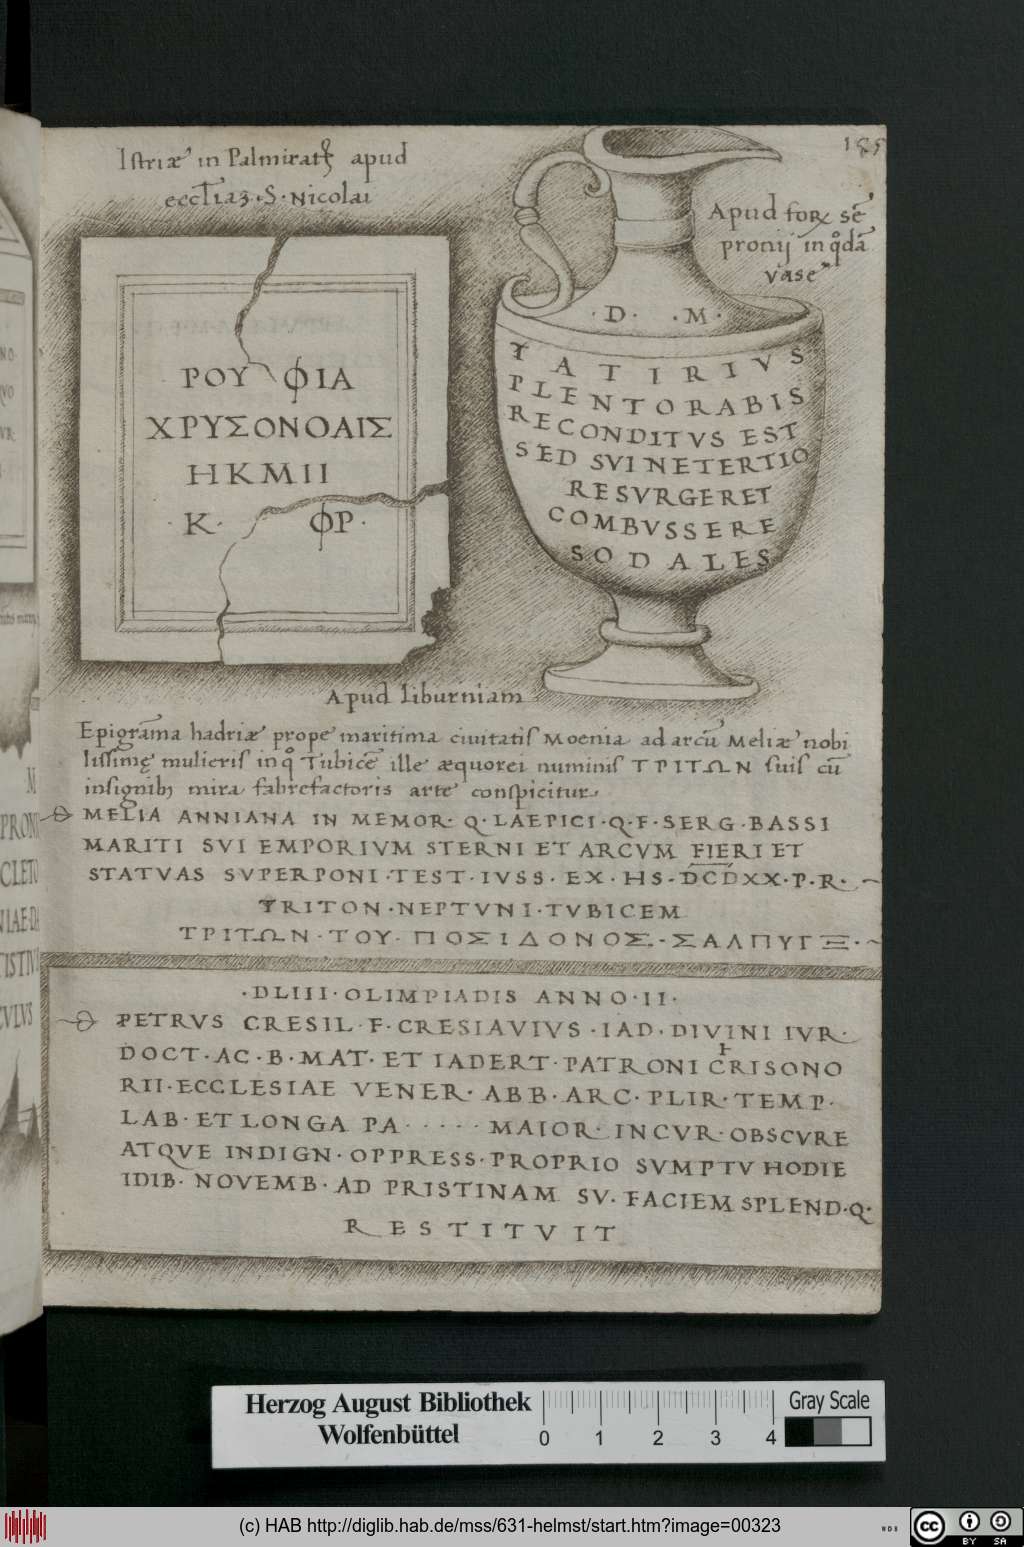 Istriæ in Palmirat apud
eccl'iaʒ · S · Nicolai
ΡΟΥ ΦΙΑ
ΧΡΥΣΟΝΟΛΙΣ
ΗΚΜΙΙ
· Κ · ΦΡ ·
185
Apud for sē
pronij in qdā
vase
· D · · M ·
TATIRIVS
PLENTORABIS
RECONDITVS EST
SED SVINETERTIO
RESVRGERET
COMBVSSERE
SODALES
Apud liburniam
Epigrāma hadriæ prope maritima ciuitatis Moenia ad arcū Meliæ nobi
lissimę mulieris in q Tubicē ille æquorei numinis ΤΡΙΤΩΝ suis cū
insignibʒ mira fabrefactoris arte conspicitur
MELIA ANNIANA IN MEMOR · Q · LAEPICI · Q · F · SERG · BASSI
MARITI SVI EMPORIVM STERNI ET ARCVM FIERI ET
STATVAS SVPERPONI · TEST · IVSS · EX · HS · DCDXX · P · R ·
TRITON · NEPTVNI · TVBICEM
ΤΡΙΤΩΝ · ΤΟΥ · ΠΟΣΙΔΟΝΟΣ · ΣΑΛΠΥΓΞ ·
· DLIII · OLIMPIADIS ANNO · II ·
PETRVS CRESIL · F · CRESIAVIVS · IAD · DIVINI IVR ·
DOCT · AC · B · MAT · ET IADERT · PATRONI CRISONO
RII · ECCLESIAE VENER · ABB · ARC · PLIR · TEMP ·
LAB · ET LONGA PA · · · · · MAIOR · INCVR · OBSCVRE
ATQVE INDIGN · OPPRESS · PROPRIO SVMPTV HODIE
IDIB · NOVEMB · AD PRISTINAM SV · FACIEM SPLEND · Q ·
RESTITVIT
Herzog August Bibliothek
Wolfenbüttel
0 1 2 3 4
Gray Scale
(c) HAB http://diglib.hab.de/mss/631-helmst/start.htm?image=00323
WDB
cc BY SA